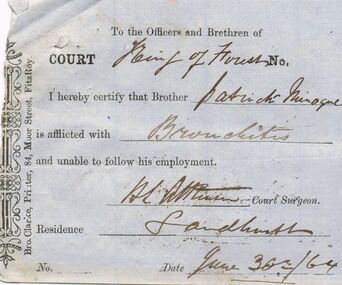 To the Officers and Brethren of
COURT King of Forest No.
I hereby certify that Brother Patrick Minogue
is afflicted with Bronchitis
and unable to follow his employment.
Court Surgeon.
Residence Sandhurst
No. Date June 30th/64
Bro. Clarke, Printer, 84, Moor Street, FitzRoy.